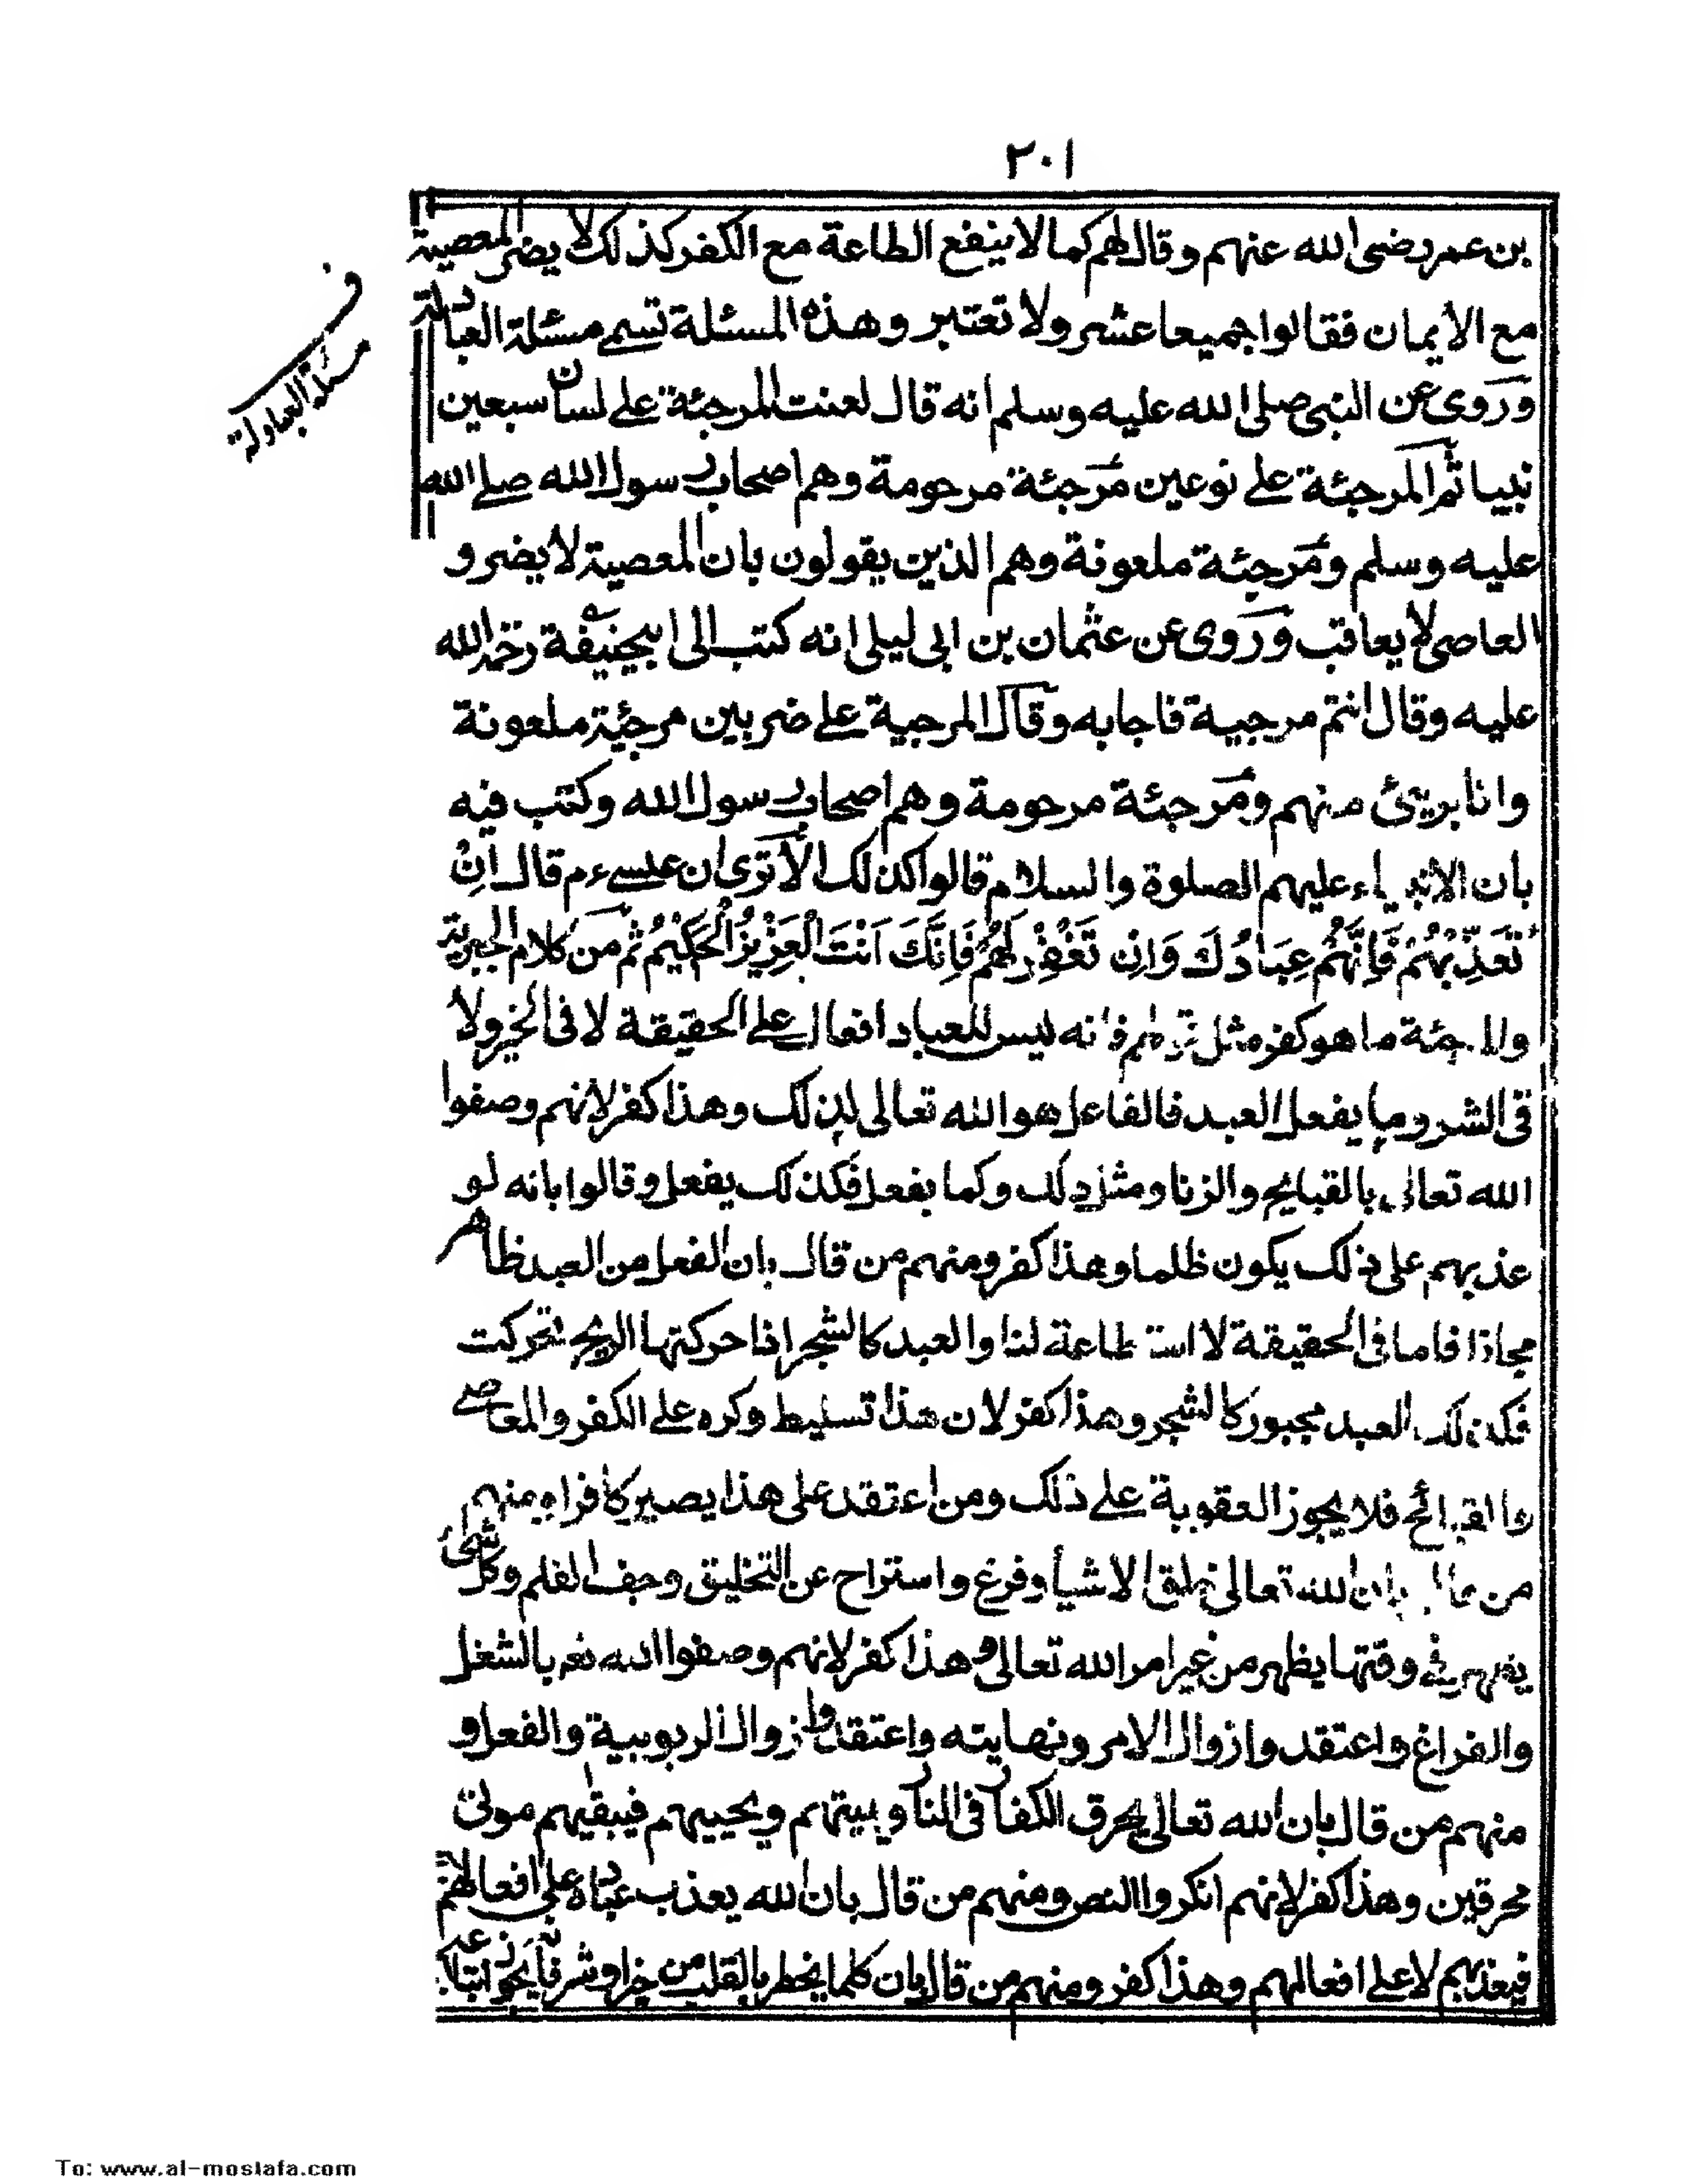 ٢٠١
بن عمر رضى الله عنهم وقال لهم كما لا ينفع الطاعة مع الكفر كذلك لا يضر المعصية
مع الايمان فقالوا جميعا عشر ولا تعتبر وهذه المسئلة تسمى مسئلة العبادلة
فـ مسئلة العبادلة
وروى عن النبى صلى الله عليه وسلم انه قال لعنت المرجئة على لسان سبعين
نبيا ثم المرجئة على نوعين مرجئة مرحومة وهم اصحاب رسول الله صلى الله
عليه وسلم ومرجئة ملعونة وهم الذين يقولون بان المعصية لا يضر و
العاصى لا يعاقب وروى عن عثمان بن ابى ليلى انه كتب الى ابيحنيفة رحمة الله
عليه وقال انتم مرجية فاجابه وقال المرجية على ضربين مرجئة ملعونة
وانا برىئ منهم ومرجئة مرحومة وهم اصحاب رسول الله وكتب فيه
بان الانبياء عليهم الصلوة والسلام قالوا كذلك الا ترى ان عيسى ءم قال ان
تعذبهم فانهم عبادك وان تغفر لهم فانك انت العزيز الحكيم ثم من كلام الجبرية
والمرجئة ما هو كفر مثل قولهم فانه ليس للعباد افعال على الحقيقة لا فى الخير ولا
فى الشر وما يفعل العبد فالفاعل هو الله تعالى لذلك وهذا كفر لانهم وصفوا
الله تعالى بالقبايح والزنا ومثل ذلك وكما يفعل فكذلك يفعل وقالوا بانه لو
عذبهم على ذلك يكون ظلما وهذا كفر ومنهم من قال بان الفعل من العبد ظاهر
مجازا فاما فى الحقيقة لا استطاعة لنا والعبد كالشجر اذا حركتها الريح تحركت
فكذلك العبد مجبور كالشجر وهذا كفر لان هذا تسليط وكره على الكفر والمعاصى
والقبائح فلا يجوز العقوبة على ذلك ومن اعتقد على هذا يصير كافرا ومنهم
من قال بان الله تعالى خلق الاشيأ وفرغ واستراح عن التخليق وجف القلم وكل شئ
يظهر فى وقتها يظهر من غير امر الله تعالى وهذا كفر لانهم وصفوا الله تعـ بالشغل
والفراغ واعتقدوا زوال الامر ونهايته واعتقدوا زوال الربوبية والفعل و
منهم من قال بان الله تعالى يحرق الكفار فى النار ويميتهم ويحييهم فيبقيهم موتى
محرقين وهذا كفر لانهم انكروا النص ومنهم من قال بان الله يعذب عباده على افعالهم
فيعذبهم لا على افعالهم وهذا كفر ومنهم من قال بان كلما يخطر بالقلب من خير او شر
To: www.al-mostafa.com